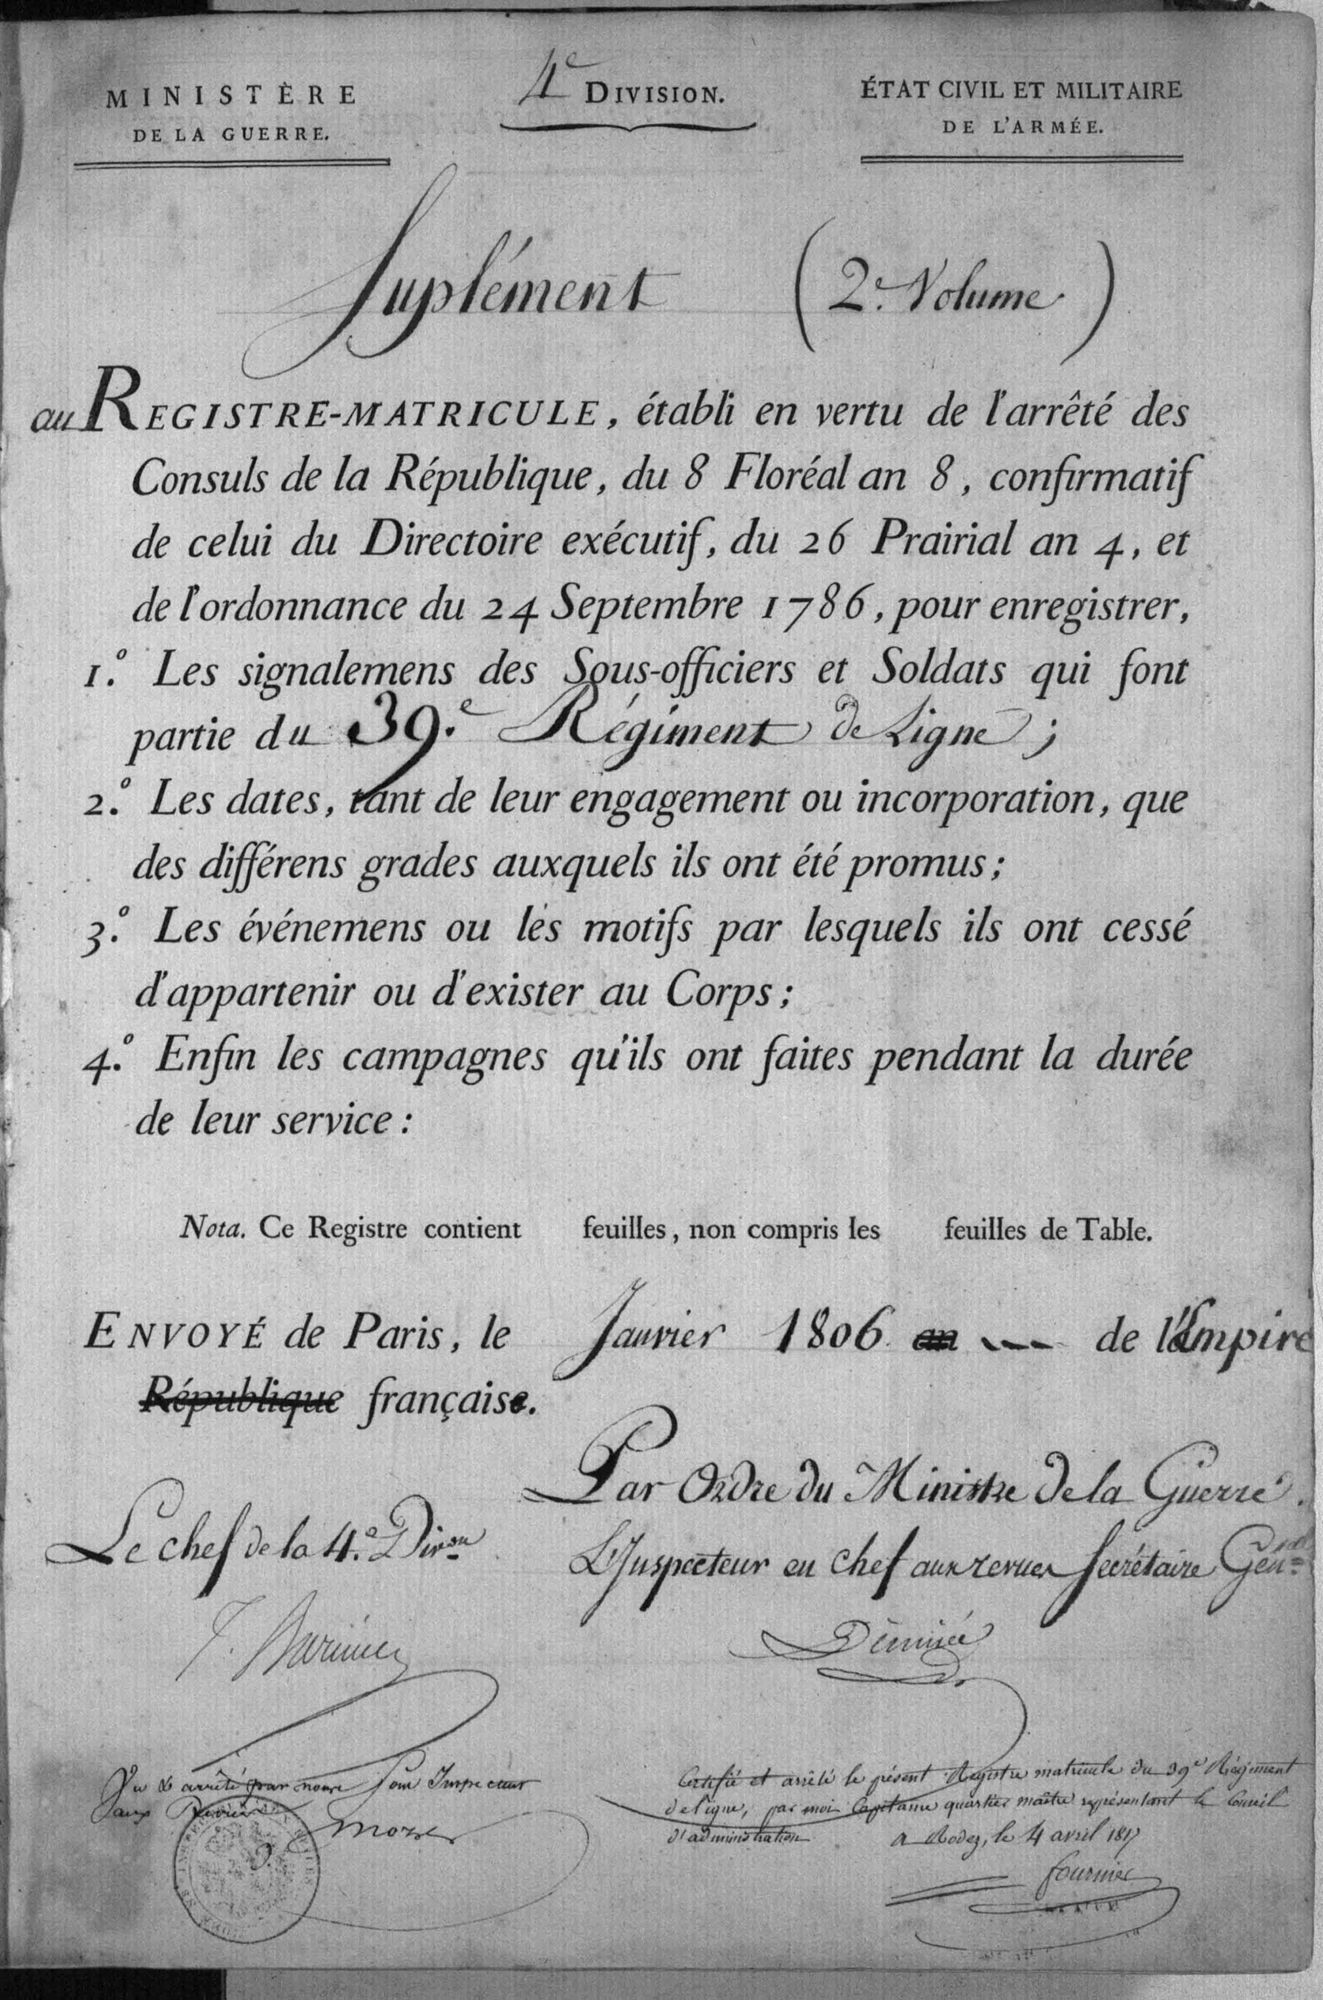 MINISTÈRE
DE LA GUERRE.
4e DIVISION.
ÉTAT CIVIL ET MILITAIRE
DE L'ARMÉE.
Suplément (2e. Volume)
au REGISTRE-MATRICULE, établi en vertu de l'arrêté des
Consuls de la République, du 8 Floréal an 8, confirmatif
de celui du Directoire exécutif, du 26 Prairial an 4, et
de l'ordonnance du 24 Septembre 1786, pour enregistrer,
1.° Les signalemens des Sous-officiers et Soldats qui font
partie du 39.e Régiment de Ligne;
2.° Les dates, tant de leur engagement ou incorporation, que
des différens grades auxquels ils ont été promus;
3.° Les événemens ou les motifs par lesquels ils ont cessé
d'appartenir ou d'exister au Corps;
4.° Enfin les campagnes qu'ils ont faites pendant la durée
de leur service:
Nota. Ce Registre contient feuilles, non compris les feuilles de Table.
ENVOYÉ de Paris, le Janvier 1806 an de l'Empire
République française.
Par Ordre du Ministre de la Guerre.
Le chef de la 4.e Dir.on
L'Inspecteur en chef aux revues Secrétaire Gén.al
Denniée
Vu & arrêté par nous Sous Inspecteur
aux Revues
Certifié et arrêté le présent Registre matricule du 39e Régiment
de ligne, par moi Capitaine quartier maître représentant le Conseil
d'administration a Rodez, le 4 avril 1817
fournier